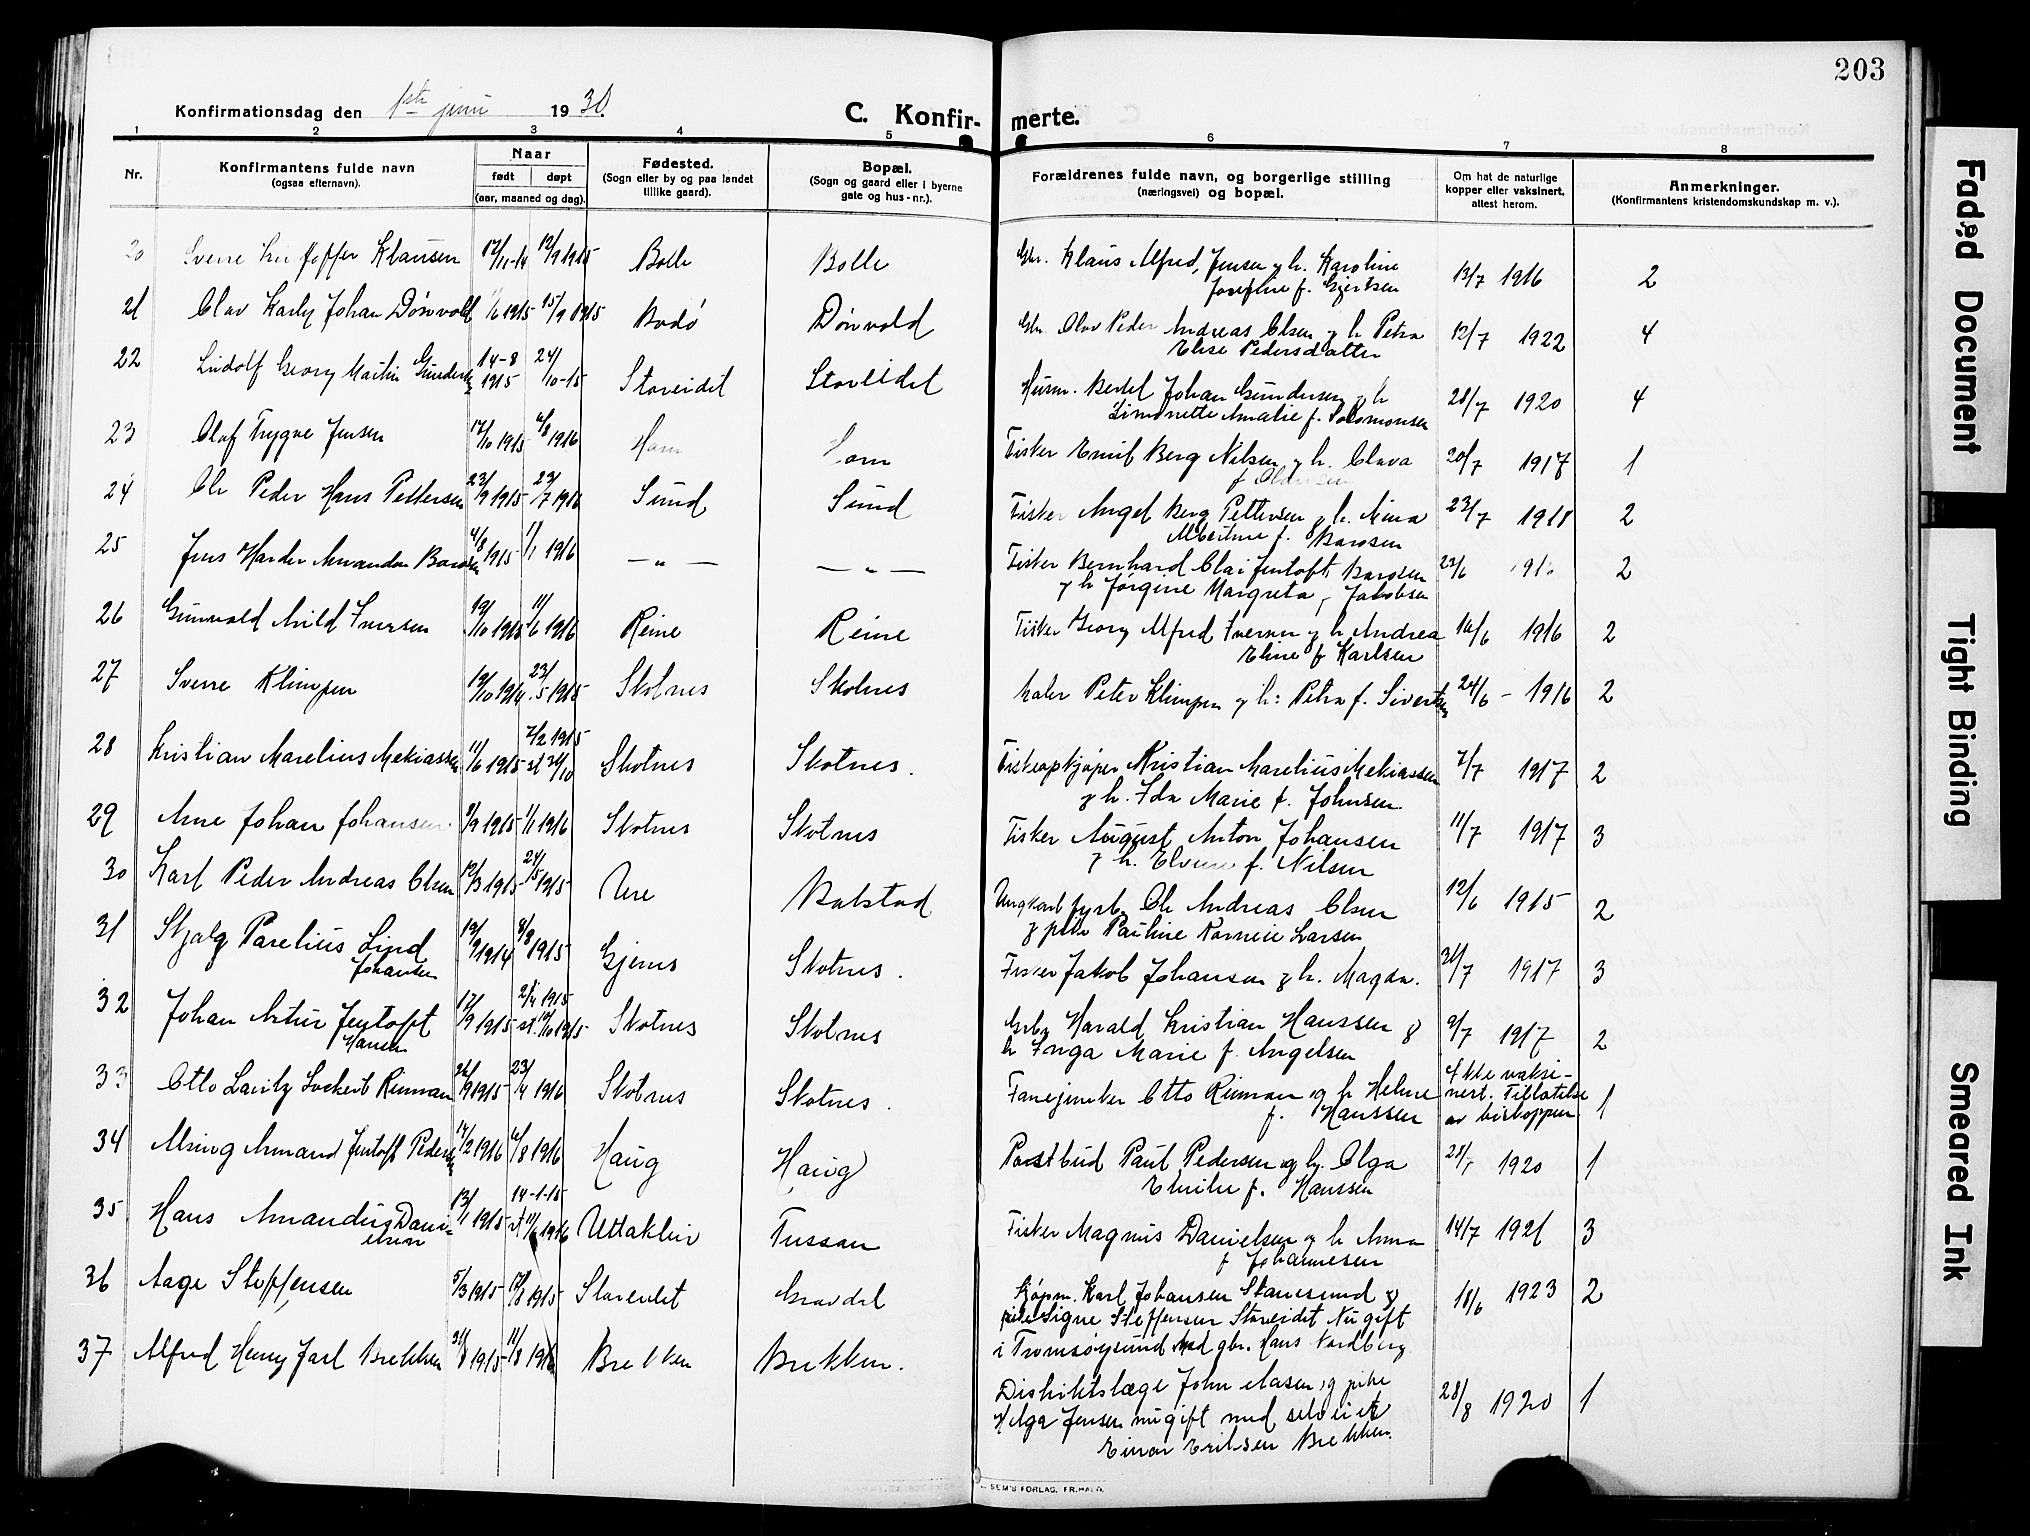 203
Konfirmationsdag den 1ste juni 1930.
C. Konfir- merte.
1 2 3 4 5 6 7 8
Nr.
Konfirmantens fulde navn
(ogsaa efternavn).
Naar
født døpt
(aar, maaned og dag).
Fødested.
(Sogn eller by og paa landet
tillike gaard).
Bopæl.
(Sogn og gaard eller i byerne
gate og hus-nr.).
Forældrenes fulde navn, og borgerlige stilling
(næringsvei) og bopæl.
Om hat de naturlige
kopper eller vaksinert,
attest herom.
Anmerkninger.
(Konfirmantens kristendomskundskap m. v.).
20 Sverre Klausen 17/11-14 12/9 1915 Bolle Bolle Gbr. Klaus Alfred Jensen og h. Karoline 13/7 1916 2
Josefine f. Gjertsen
21 Olav Karly Johan Dønvold 1/6 1915 15/9 1915 Bodö Dönvold Gbr. Olav Peder Andreas Olsen og h. Petra 12/7 1922 4
Elise Pedersdatter
22 Ludolf Georg Martin Gundersen 14-8 1915 24/10-15 Storeidet Storeidet Husm. Bertel Johan Gundersen og h 28/7 1920 4
Simonette Amalie f. Solomonsen
23 Olaf Trygve Jensen 17/10 1915 6/8 1916 Horn Horn Fisker Emil Berg Nilsen og h. Olava 20/7 1917 1
24 Ole Peder Hans Pettersen 23/9 1915 23/7 1916 Sund Sund Fisker Angel Berg Pettersen og h. Mina 23/7 1918 2
Albertine f. Barosen
25 Jens Harder Amandus Barosen 4/8 1915 1/1 1916 — „ — — „ — Fisker Bernhard Olai Jentoft Barosen 23/6 2
og h Jørgine Margreta f Jakobsen
26 Gunvald Arild Iversen 19/10 1915 11/6 1916 Reine Reine Fisker Georg Alfred Iversen og h Andrea 16/6 1916 2
Eline f Karlsen
27 Sverre Klimpen 19/10 1914 23/5 1915 Skotnes Skotnes Maler Peter Klimpen og h: Petra f. Sivertsen 24/6 - 1916 2
28 Kristian Marelius Mekiassen 11/6 1915 7/2 1915 st 24/10 Skotnes Skotnes. Fiskeopkjøper Kristian Marelius Mekiassen 7/7 1917 2
og h. Ida Marie f. Johnsen.
29 Arne Johan Johansen 2/9 1915 1/1 1916 Skotnes Skotnes Fisker August Anton Johansen 11/7 1917 3
og h. f. Nilsen
30 Karl Peder Andreas Olsen 12/3 1915 24/5 1915 Ure Balstad Ungkarl fyrb. Ole Andreas Olsen 12/6 1915 2
og pike Pauline Larsen
31 Skjalg Parelius Lind 19/9 1914 8/8 1915 Gjerns Skotnes. Fisker Jakob Johansen og h. Magda. 31/7 1917 3
Johansen
32 Johan Artur Jentoft 17/9 1915 2/4 1915 st. 19/10 1915 Skotnes Skotnes Harald Kristian Hanssen og 9/7 1917 2
Hansen h Inga Marie f. Angelsen
33 Otto Lauritz Lockert Rinman 26/9 1915 23/4 1916 Skotnes Skotnes. Fanejunker Otto Rinman og h Helene Ikke vaksi- 1
f. Hanssen nert. Tillatelse
av biskoppen
34 Alsing Armand Jentoft Pedersen 14/2 1916 6/8 1916 Haug Haug Postbud Paul Pedersen og h. Olga 1920 1
Emilie f. Hanssen
35 Hans Amandus Dani- 13/1 1915 14-1-15 Uttaklev Fussan Fisker Magnus Danielsen og h Anna 14/7 1921 3
elsen f Johannesen
36 Aage Steffensen 5/3 1915 17/8 1915 Storeidet Gravdal Kjøpm. Karl Johansen Stamsund og 18/6 1923 2
pike Signe Steffensen Storeidet Nu gift
i Tromsøysund med gbr. Hans Nordberg
37 Alfred Henry Jarl Brekken 31/8 1915 11/8 1916 Brekken Brekken. Distriktslæge John Aasen og pike 28/8 1920 1
Helga Jensen nu gift med selveier
Einar Eriksen Brekken.
SEM'S FORLAG. FR.HALD.
Faded Document
Tight Binding
Smeared Ink